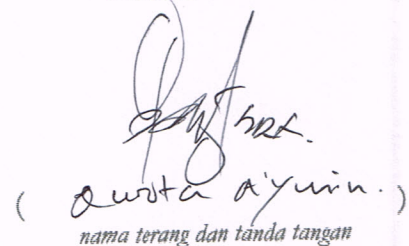 ( Qurota A'yunin. )
nama terang dan tanda tangan